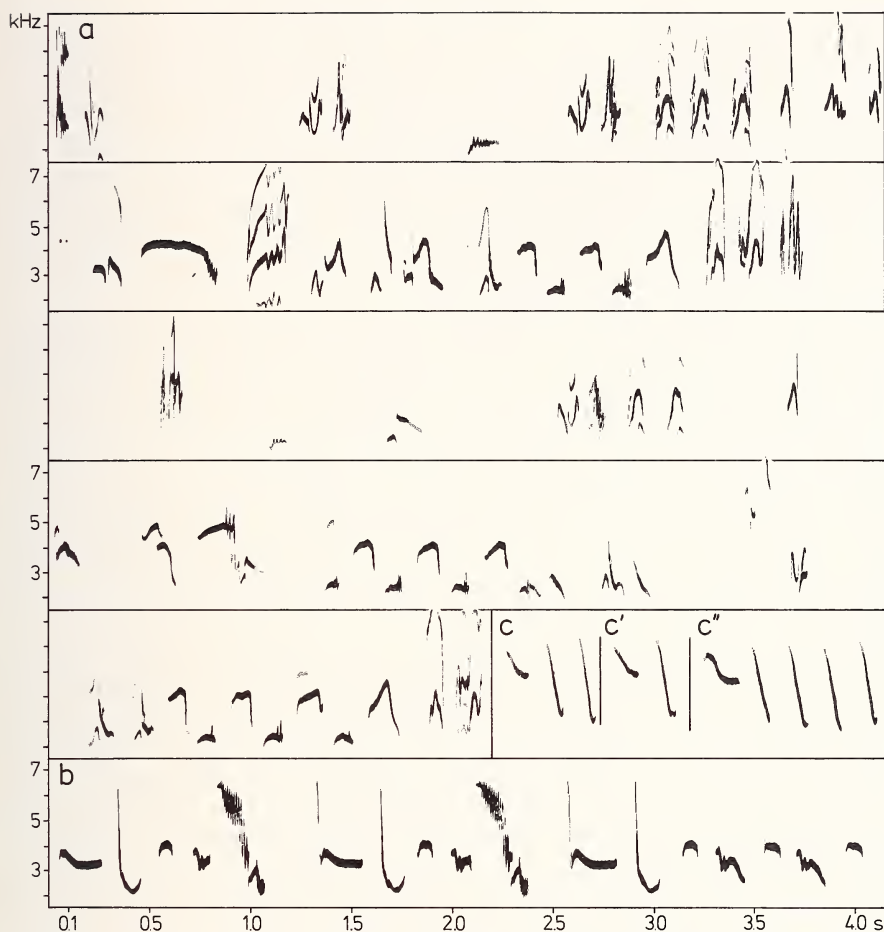 kHz a
7
5
3
7
5
3
c c' c"
b
7
5
3
0.1 0.5 1.0 1.5 2.0 2.5 3.0 3.5 4.0 s